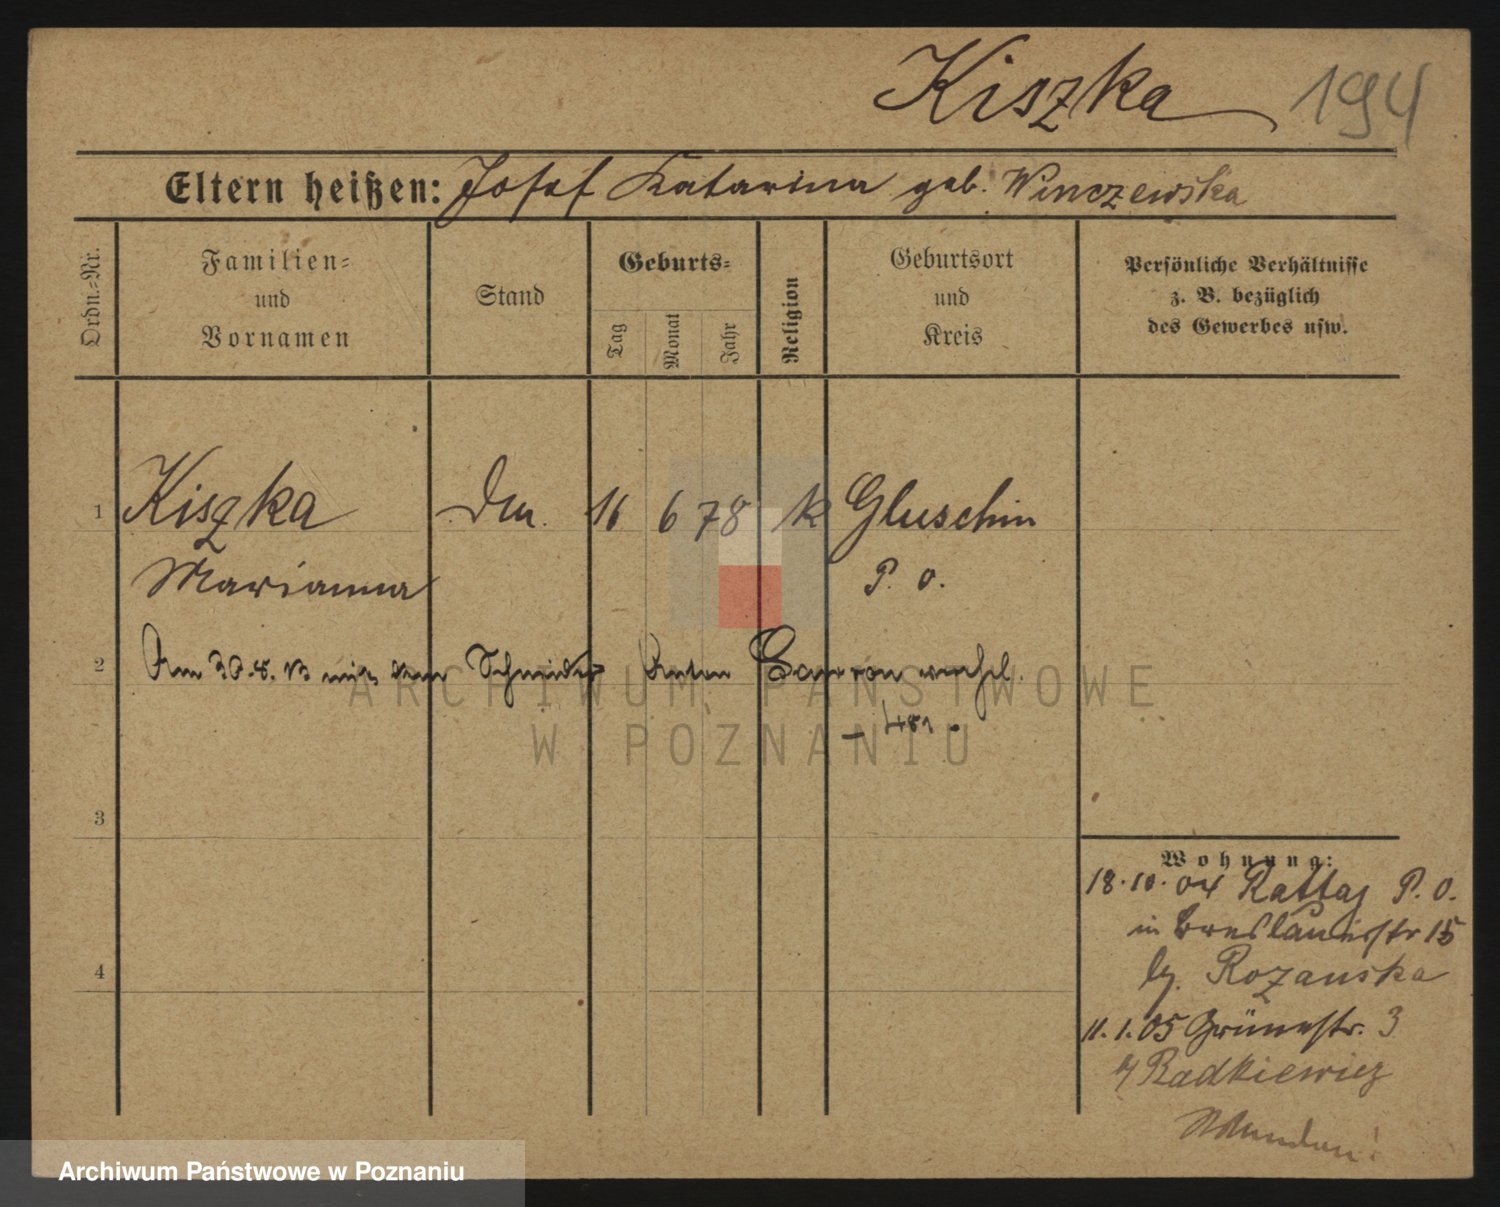 Kiszka 194
Eltern heißen: Josef Katarina geb. Winczewska
Ordn.-Nr.
Familien-
und
Vornamen
Stand
Geburts-
Tag
Monat
Jahr
Religion
Geburtsort
und
Kreis
Persönliche Verhältnisse
z. B. bezüglich
des Gewerbes usw.
1 Kiszka 16 6 78 k Gluschin
Marianna P. O.
2 Am 30. 8. mit dem Schneider Anton verehel.
- 481 -
3
4
Wohnung:
18.10.04 Rattaj P. O.
in Breslauerstr 15
by. Rozanska
11.1.05 Grünestr. 3
by Radkiewicz
ARCHIWUM PAŃSTWOWE
W POZNANIU
Archiwum Państwowe w Poznaniu